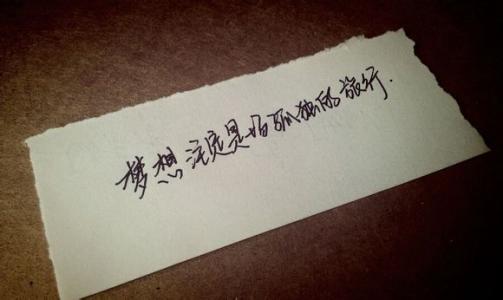 梦想注定是场孤独的旅行.